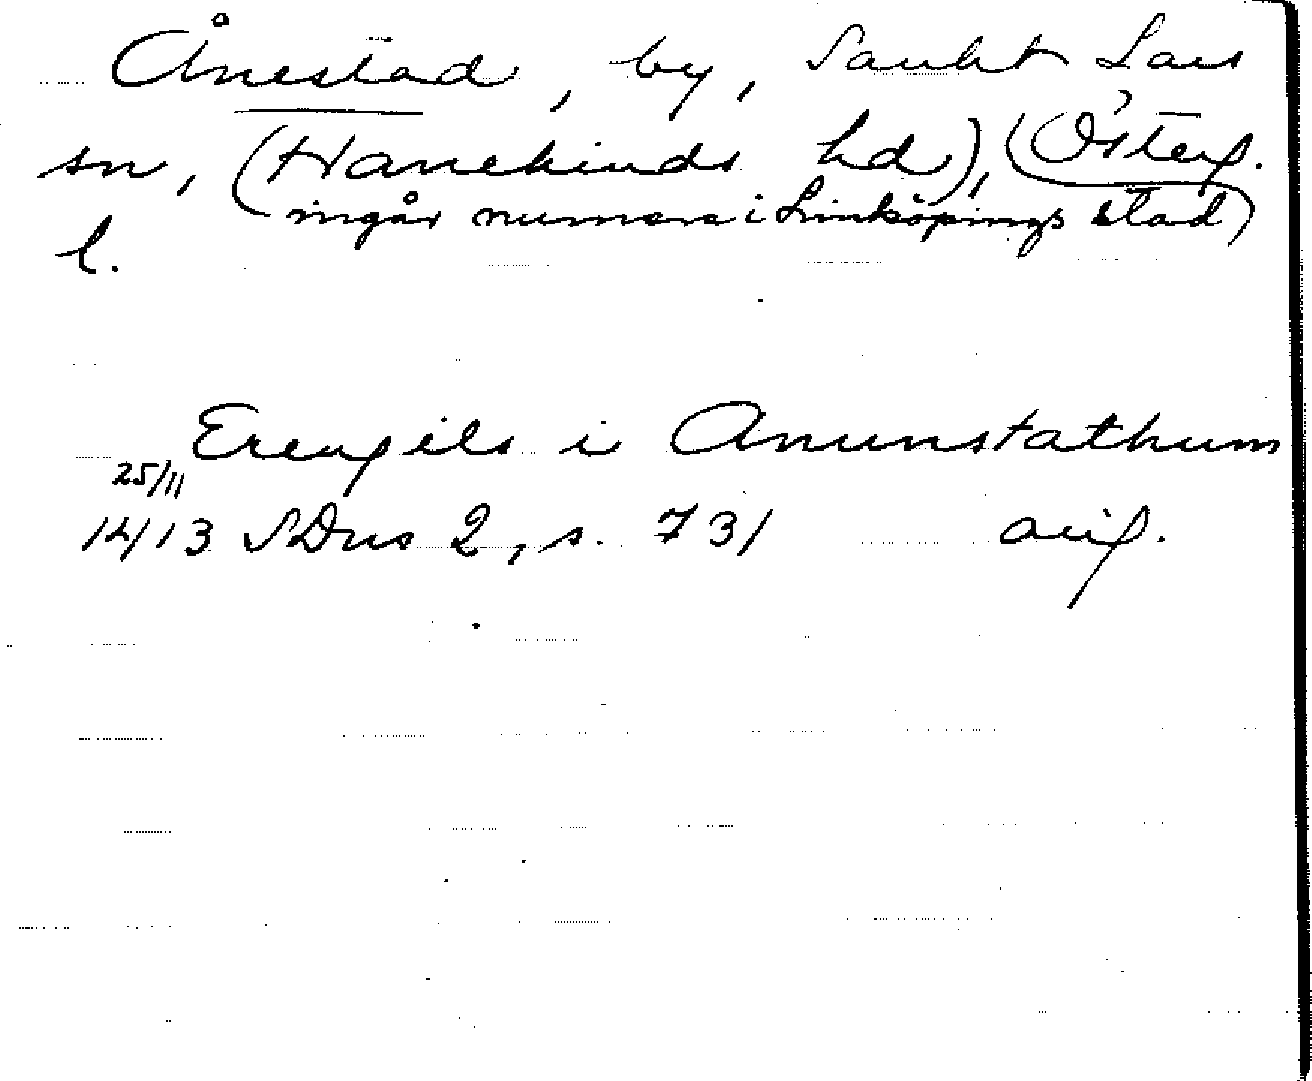 Ånestad, by, Sankt Lars
sn, (Hanekinds hd), (Österg.
ingår numera i Linköpings stad)
l.
Erengils i Anunstathum
25/11
1413 SDns 2, s. 731 orig.